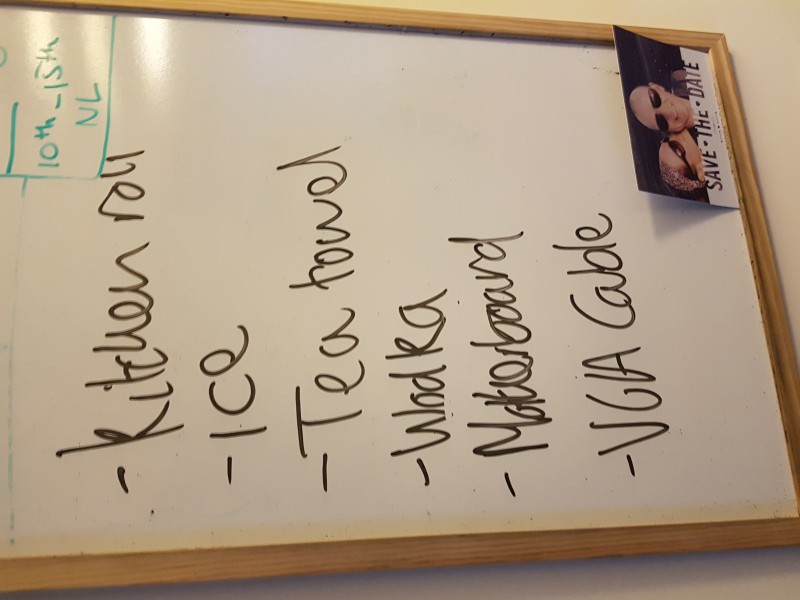 10th-15th
NL
- Kitchen roll
- ICe
- Tea towel
- Wodka
- Motherboard
- VGA Cable
SAVE•THE•DATE